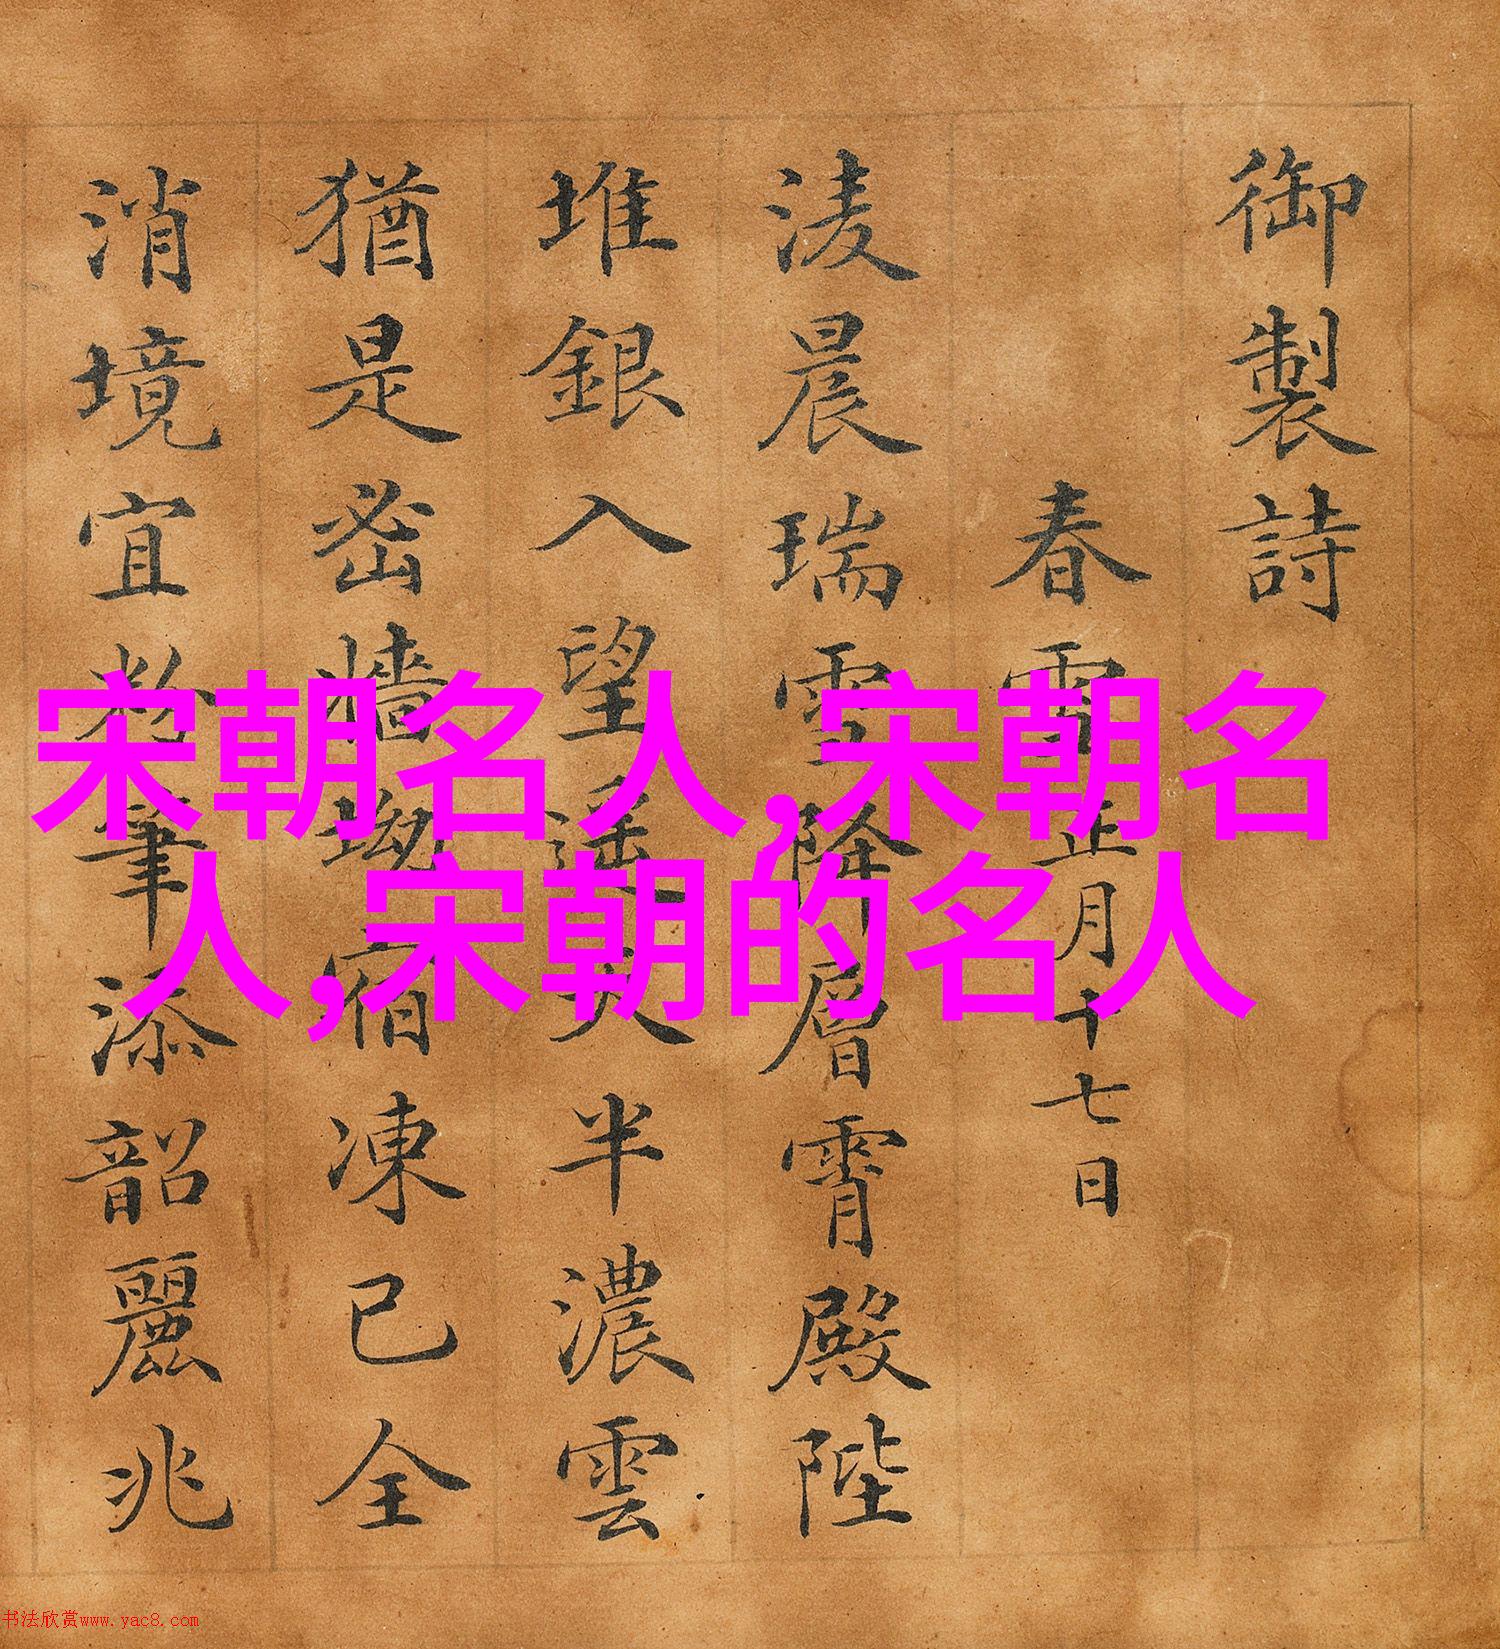 御製詩
春雪正月十七日
淩晨瑞雪降層霄殿陛
堆銀入望遥大半濃雲
猶是密牆坳宿凍已全
消境宜粉筆添韶麗兆
宋朝名人,宋朝名
人,宋朝的名人
书法欣赏www.yac8.com